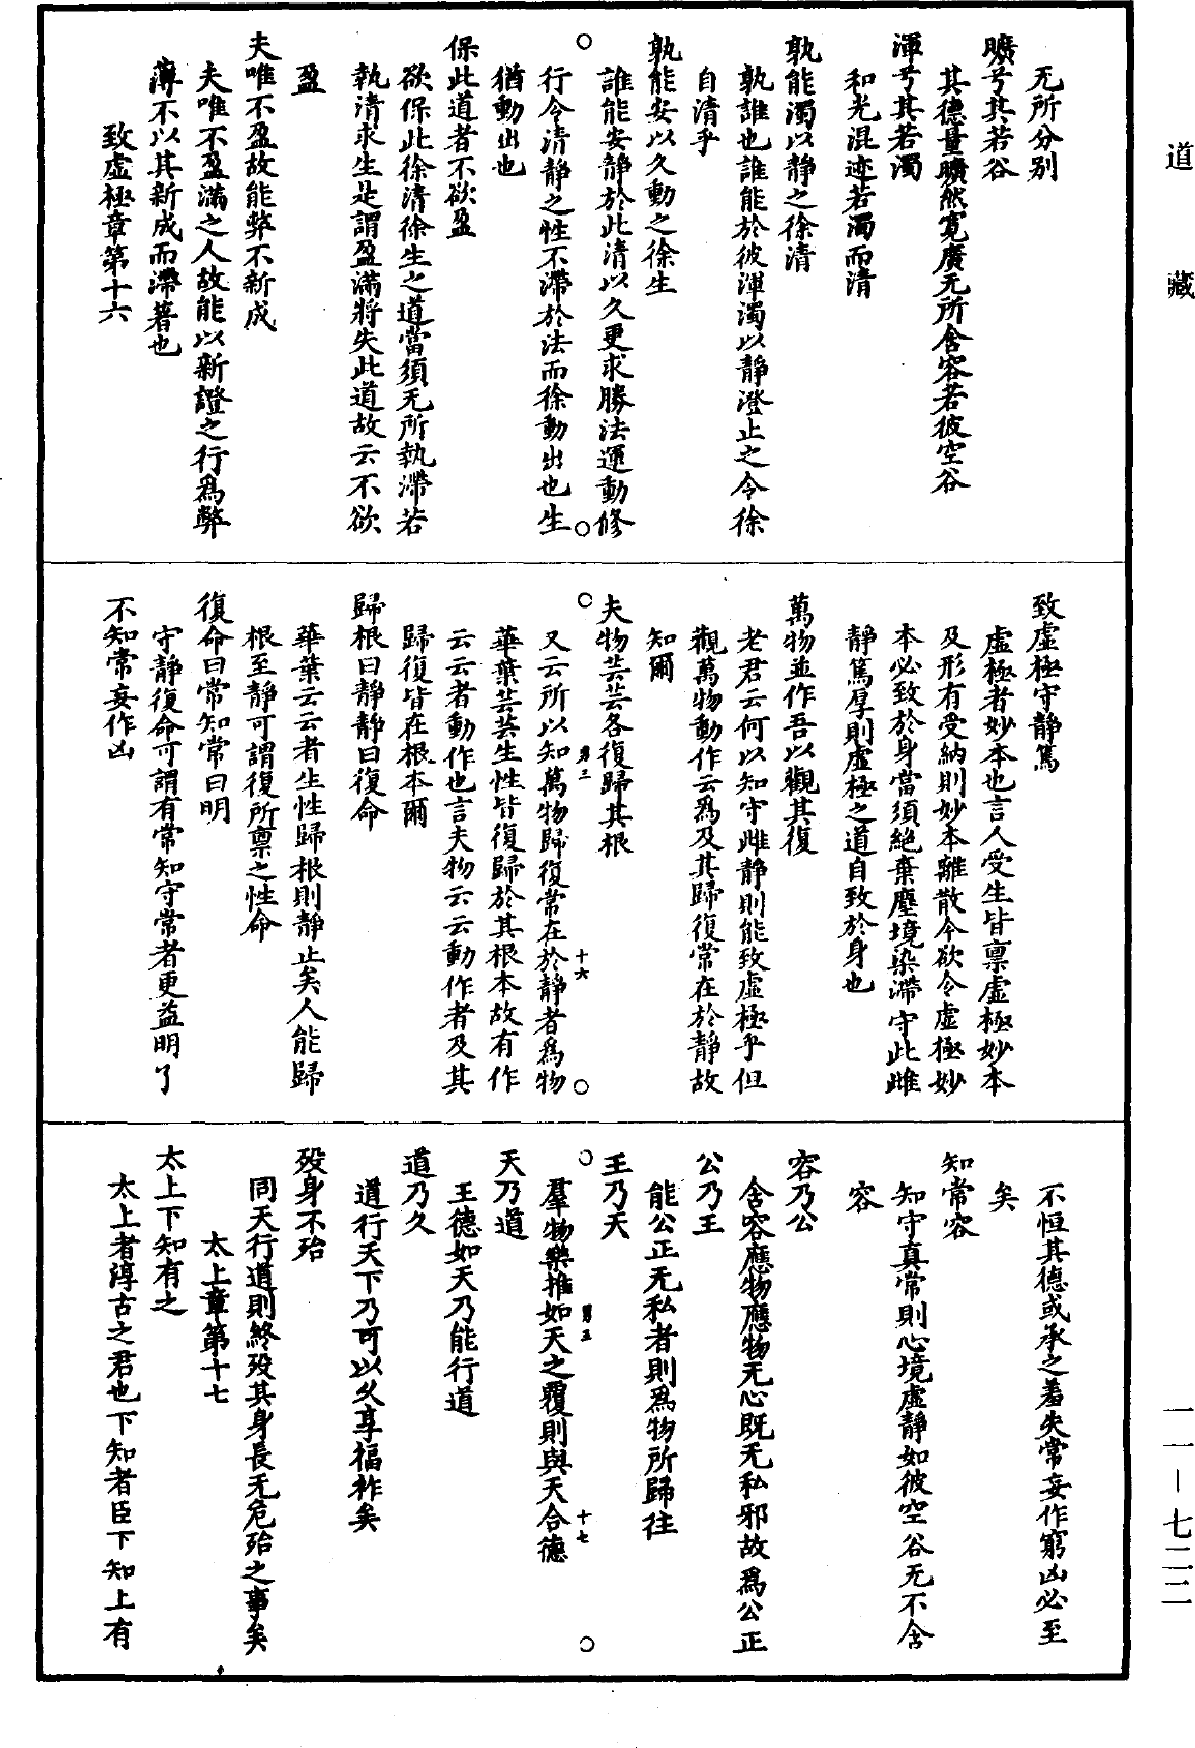 道藏
无所分别
曠兮其若谷
其德量曠然寬廣无所含容若彼空谷
渾兮其若濁
和光混迹若濁而清
孰能濁以靜之徐清
孰誰也誰能於彼渾濁以靜澄止之令徐
自清乎
孰能安以久動之徐生
誰能安靜於此清以久更求勝法運動修
行令清靜之性不滯於法而徐動出也生
猶動出也
保此道者不欲盈
欲保此徐清徐生之道當須无所執滯若
執清求生是謂盈滿將失此道故云不欲
盈
夫唯不盈故能弊不新成
夫唯不盈滿之人故能以新證之行爲弊
薄不以其新成而滯著也
致虛極章第十六
致虛極守靜篤
虛極者妙本也言人受生皆禀虛極妙本
及形有受納則妙本離散今欲令虛極妙
本必致於身當須絕棄塵境染滯守此雌
靜篤厚則虛極之道自致於身也
萬物並作吾以觀其復
老君云何以知守雌靜則能致虛極乎但
觀萬物動作云爲及其歸復常在於靜故
知爾
夫物芸芸各復歸其根
十六
又云所以知萬物歸復常在於靜者爲物
華葉芸芸生性皆復歸於其根本故有作
云云者動作也言夫物云云動作者及其
歸復皆在根本爾
歸根曰靜靜曰復命
華葉云云者生性歸根則靜止矣人能歸
根至靜可謂復所禀之性命
復命曰常知常曰明
守靜復命可謂有常知守常者更益明了
不知常妄作凶
不恒其德或承之羞失常妄作窮凶必至
矣
知常容
知守真常則心境虛靜如彼空谷无不含
容
容乃公
含容應物應物无心既无私邪故爲公正
公乃王
能公正无私者則爲物所歸往
王乃天
十七
羣物樂推如天之覆則與天合德
天乃道
王德如天乃能行道
道乃久
道行天下乃可以久享福祚矣
歿身不殆
同天行道則終歿其身長无危殆之事矣
太上章第十七
太上下知有之
太上者淳古之君也下知者臣下知上有
一一—七二二